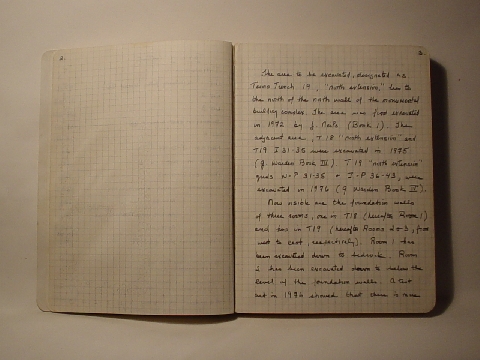 2.
3.
The area to be excavated, designated as
Tesoro Trench 19, "north extension," lies to
the north of the north wall of the monumental
building complex. The area was first excavated
in 1972 by J. (Book I). The
adjacent area, T.18 "north extension" and
T19 I 31-35 were excavated in 1975
(J. Warden Book III). T 19 "north extension"
grids N-P 31-35 + J-P 36-43, were
excavated in 1976 (J Warden Book IV).
Now visible are the foundation walls
of three rooms, one in T18 (hereafter Room 1)
and two in T19 (hereafter Rooms 2+3, from
west to east, respectively). Room 1 has
been excavated down to bedrock. Room
2 has been excavated down to below the
level of the foundation walls. A test
in 1976 showed that there is more